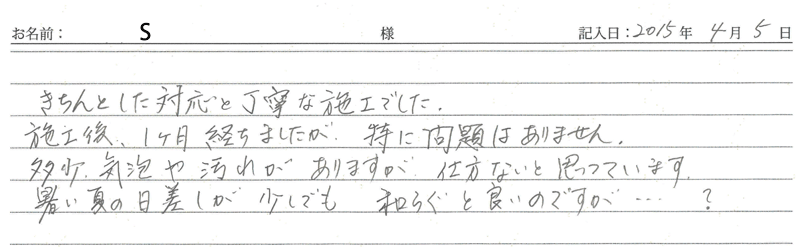 お名前： S 様 記入日：2015年 4月 5日
きちんとした対応と丁寧な施工でした。
施工後、1ヶ月経ちましたが、特に問題はありません。
多少、気泡や汚れがありますが、仕方ないと思っています。
暑い夏の日差しが少しでも 和らぐと良いのですが…. ?